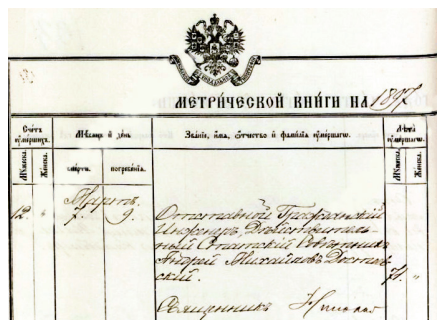 МЕТРИ́ЧЕСКОЙ КНИ́ГИ НА 1897
Счётъ оумершихъ. Мѣсяцъ и день Званіе, имя, отчество и фамилія оумершагω. Лѣта оумершагω.
Мужеска. Женска. смерти. погребенія. Мужеска. Женска.
Мартъ.
12. „ 7. 9. Отставной Гражданскій
Инженеръ, Дѣйствитель-
ный Статскій Совѣтникъ
Андрей Михайловъ Достоев-
скій. 71. „
Священникъ Николай